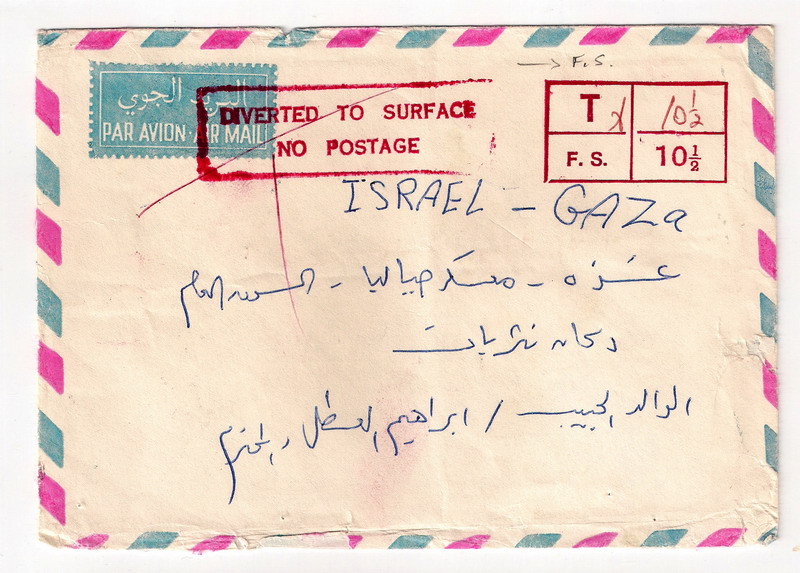 → F.S.
البريد الجوي
PAR AVION · AIR MAIL
DIVERTED TO SURFACE
NO POSTAGE
T 10½
F. S. 10½
ISRAEL - GAZa
غزه - معسكر جباليا - السوق العام
دكان نثريات
الوالد الحبيب / ابراهيم العطل المحترم